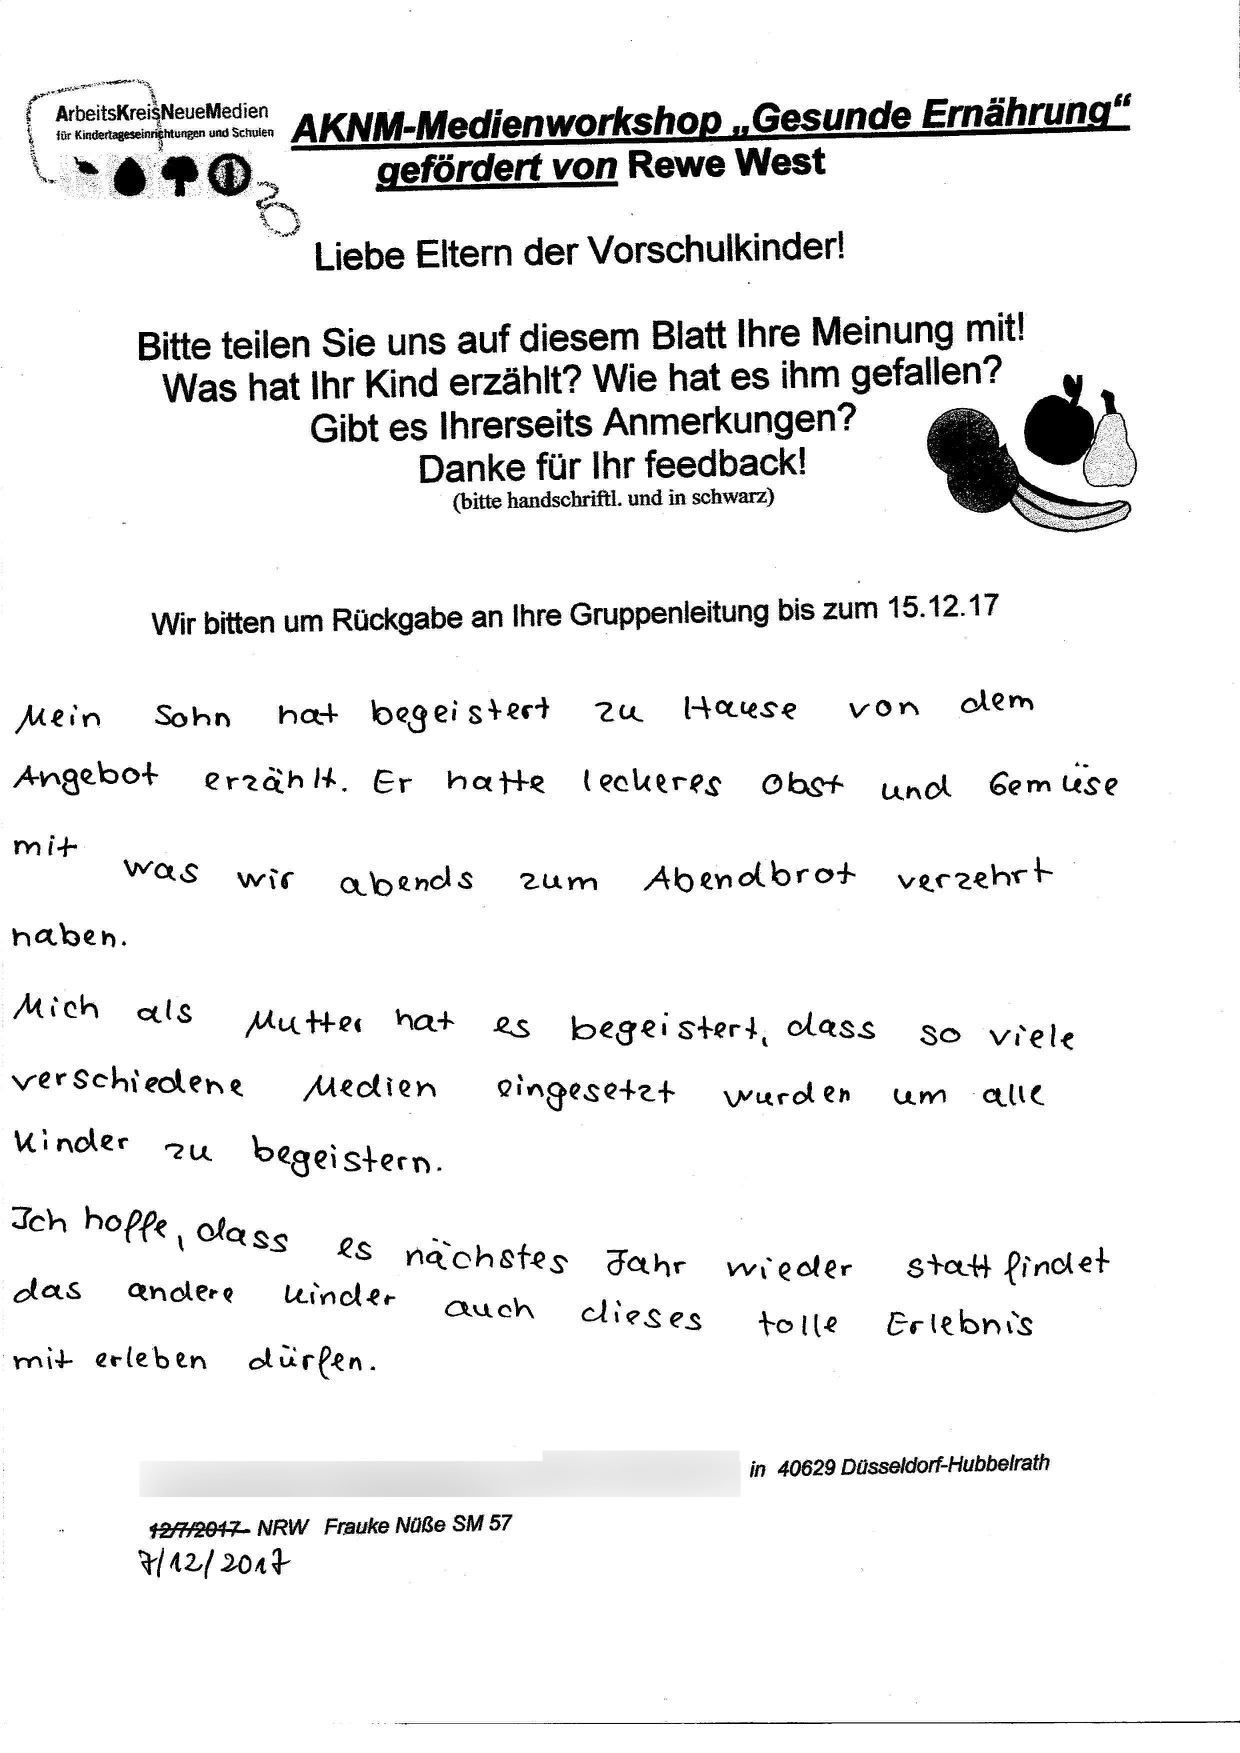 ArbeitsKreisNeueMedien
für Kindertageseinrichtungen und Schulen
AKNM-Medienworkshop „Gesunde Ernährung“
gefördert von Rewe West
Liebe Eltern der Vorschulkinder!
Bitte teilen Sie uns auf diesem Blatt Ihre Meinung mit!
Was hat Ihr Kind erzählt? Wie hat es ihm gefallen?
Gibt es Ihrerseits Anmerkungen?
Danke für Ihr feedback!
(bitte handschriftl. und in schwarz)
Wir bitten um Rückgabe an Ihre Gruppenleitung bis zum 15.12.17
Mein Sohn hat begeistert zu Hause von dem
Angebot erzählt. Er hatte leckeres Obst und Gemüse
mit was wir abends zum Abendbrot verzehrt
haben.
Mich als Mutter hat es begeistert, dass so viele
verschiedene Medien eingesetzt wurden um alle
Kinder zu begeistern.
Ich hoffe, dass es nächstes Jahr wieder stattfindet
das andere Kinder auch dieses tolle Erlebnis
mit erleben dürfen.
in 40629 Düsseldorf-Hubbelrath
12/7/2017 NRW Frauke Nüße SM 57
7/12/2017